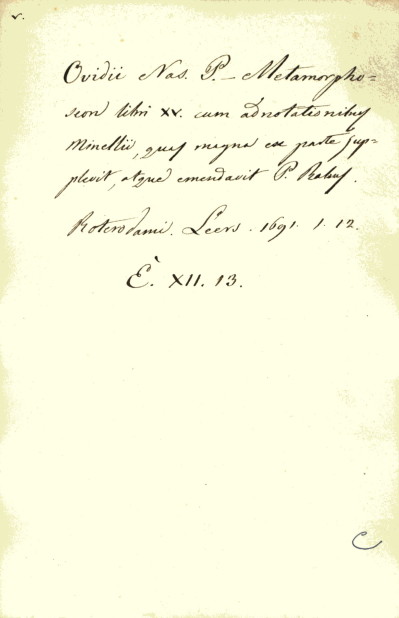 v.
Ovidii Nas. P. — Metamorpho=
seon libri XV. cum adnotationibus
Minellii, quas magna ex parte sup-
plevit, atque emendavit P. Rabus.
Roterodami. Leers. 1691. 1. 12.
È. XII. 13.
C